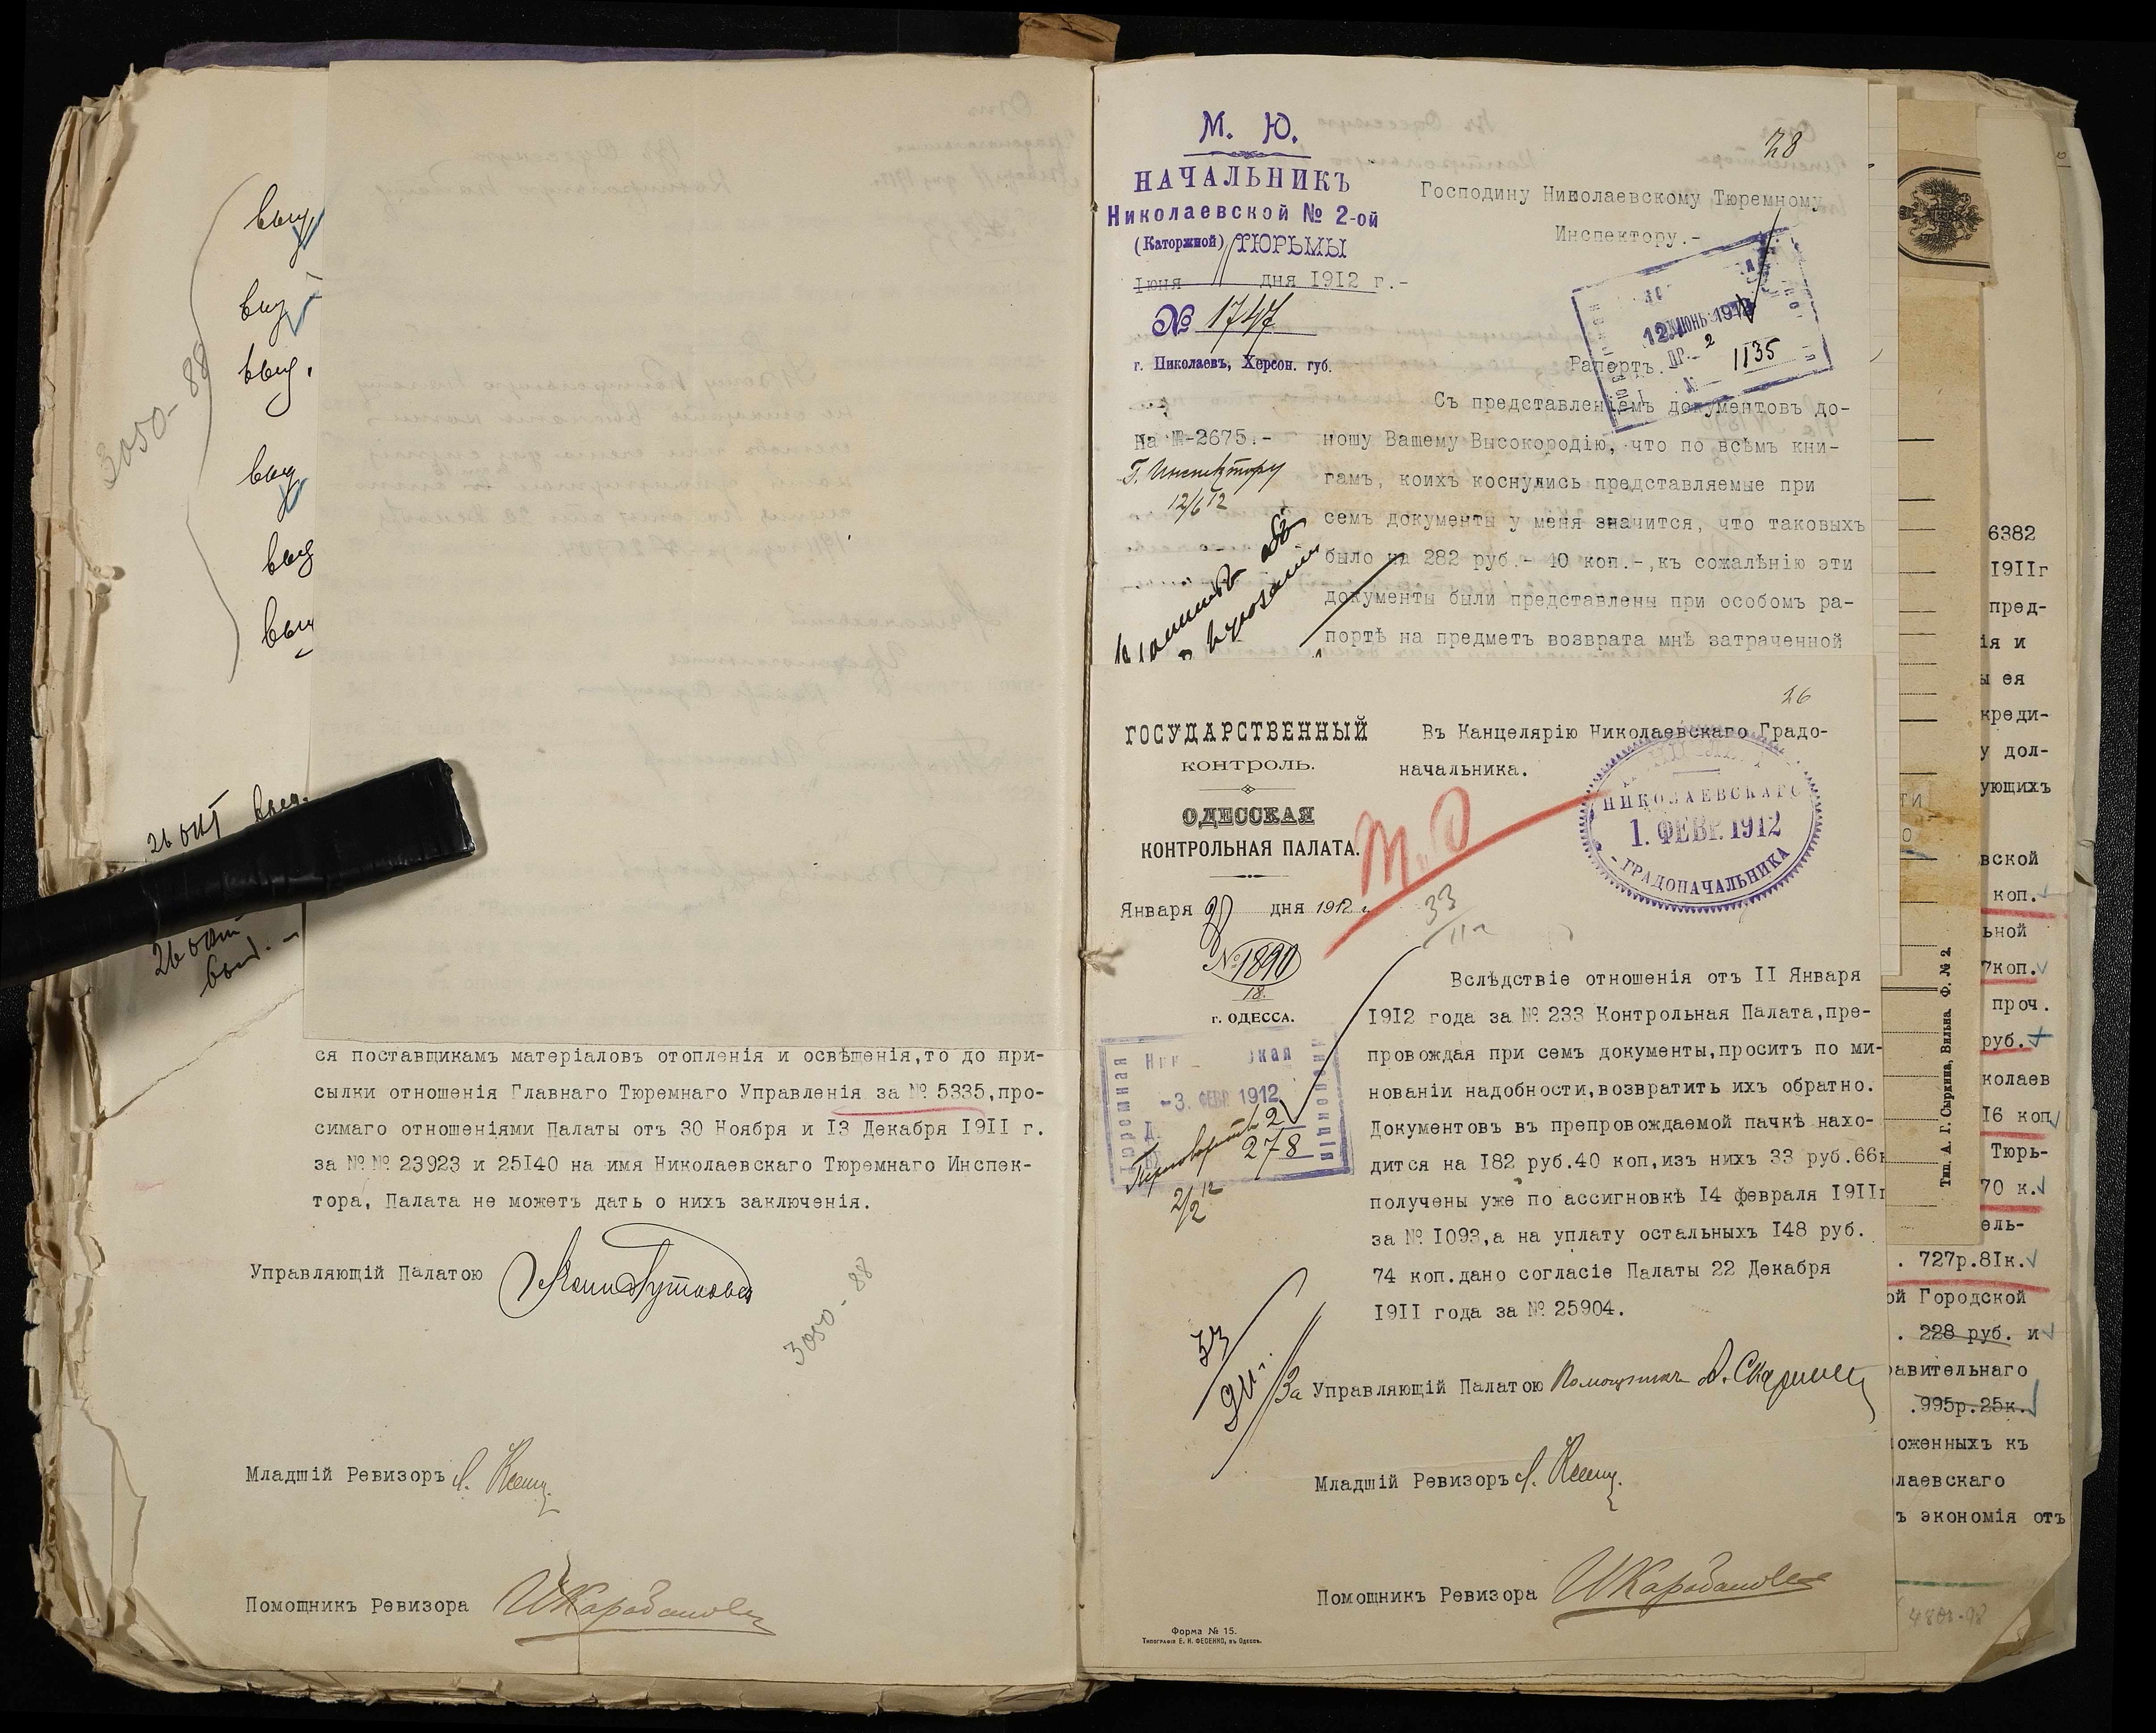 выд.
3050-88
26 окт
26 окт
выд. -
ся поставщикамъ матеріаловъ отопленія и освѣщенія,то до при-
сылки отношенія Главнаго Тюремнаго Управленія за № 5335,про-
симаго отношеніями Палаты отъ 30 Ноября и I3 Декабря I9II г.
за №№ 23923 и 25I40 на имя Николаевскаго Тюремнаго Инспек-
тора, Палата не можетъ дать о нихъ заключенія.
Управляющій Палатою
3050-88
Младшій Ревизоръ
Помощникъ Ревизора
М. Ю.
НАЧАЛЬНИКЪ
Николаевской № 2-ой
(Каторжной) ТЮРЬМЫ
Іюня 11 дня 1912 г.-
№ 1747
г. Николаевъ, Херсон. губ.
28
Господину Николаевскому Тюремному
Инспектору.-
12 ІЮНЬ 1912
1135
Рапортъ.
На №-2675.-
Г. Инспектору
12/6 12
Съ представленіемъ документовъ до-
ношу Вашему Высокородію, что по всѣмъ кни-
гамъ, коихъ коснулись представляемые при
семъ документы у меня значится, что таковыхъ
было на 282 руб.- 40 коп.-,къ сожалѣнію эти
документы были представлены при особомъ ра-
портѣ на предметъ возврата мнѣ затраченной
26
ГОСУДАРСТВЕННЫЙ
КОНТРОЛЬ.
ОДЕССКАЯ
КОНТРОЛЬНАЯ ПАЛАТА.
Января дня 1912 г.
№ 1890
18.
г. ОДЕССА.
Въ Канцелярію Николаевскаго Градо-
начальника.
НИКОЛАЕВСКАГО
1. ФЕВР. 1912
ГРАДОНАЧАЛЬНИКА
Т.О
33
Тюремная
-3. ФЕВР 1912
278
Вслѣдствіе отношенія отъ II Января
I912 года за № 233 Контрольная Палата,пре-
провождая при семъ документы,проситъ по ми-
нованіи надобности,возвратить ихъ обратно.
Документовъ въ препровождаемой пачкѣ нахо-
дится на I82 руб.40 коп,изъ нихъ 33 руб.66к
получены уже по ассигновкѣ I4 февраля I9IIг
за № I093,а на уплату остальныхъ I48 руб.
74 коп.дано согласіе Палаты 22 Декабря
I9II года за № 25904.
За Управляющій Палатою Помощникъ
Младшій Ревизоръ
Помощникъ Ревизора
Форма № 15.
Типографія Е. И. ФЕСЕНКО, въ Одессѣ.
Тип. А. Г. Сыркина, Вильна. Ф. № 2.
6382
I9IIг
пред-
ія и
ы ея
креди-
у дол-
ующихъ
вской
коп.
ьной
7коп.
проч.
руб.
колаев
I6 коп
Тюрь-
70 к.
ель-
. 727р.8Iк.
ой Городской
. 228 руб. и
равительнаго
.995р.25к.
оженныхъ къ
лаевскаго
ъ экономія отъ
4808-98